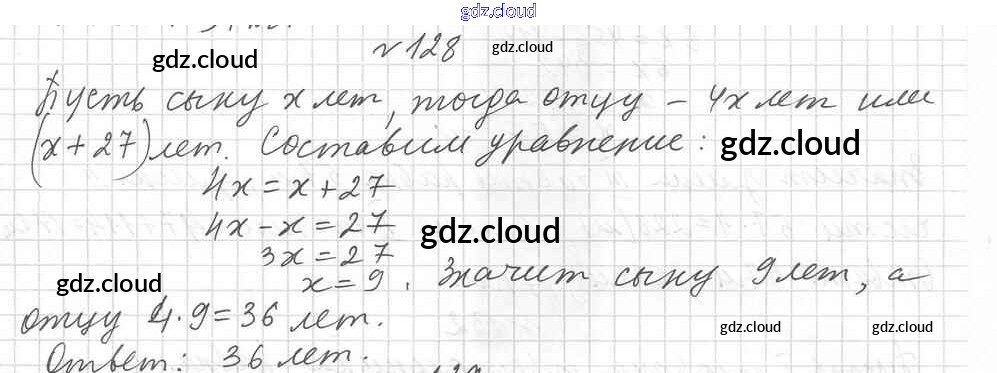 gdz.cloud
№128 gdz.cloud
gdz.cloud
Пусть сыну x лет, тогда отцу – 4x лет или
(x+27) лет. Составим уравнение: gdz.cloud
4x = x + 27
4x - x = 27 gdz.cloud
3x = 27
gdz.cloud x = 9. Значит сыну 9 лет, а
отцу 4·9=36 лет. gdz.cloud gdz.cloud
Ответ: 36 лет.